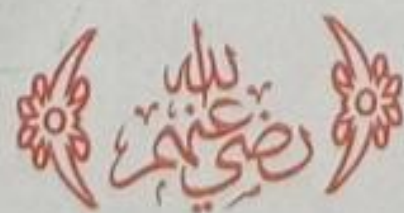 رضي الله عنهم